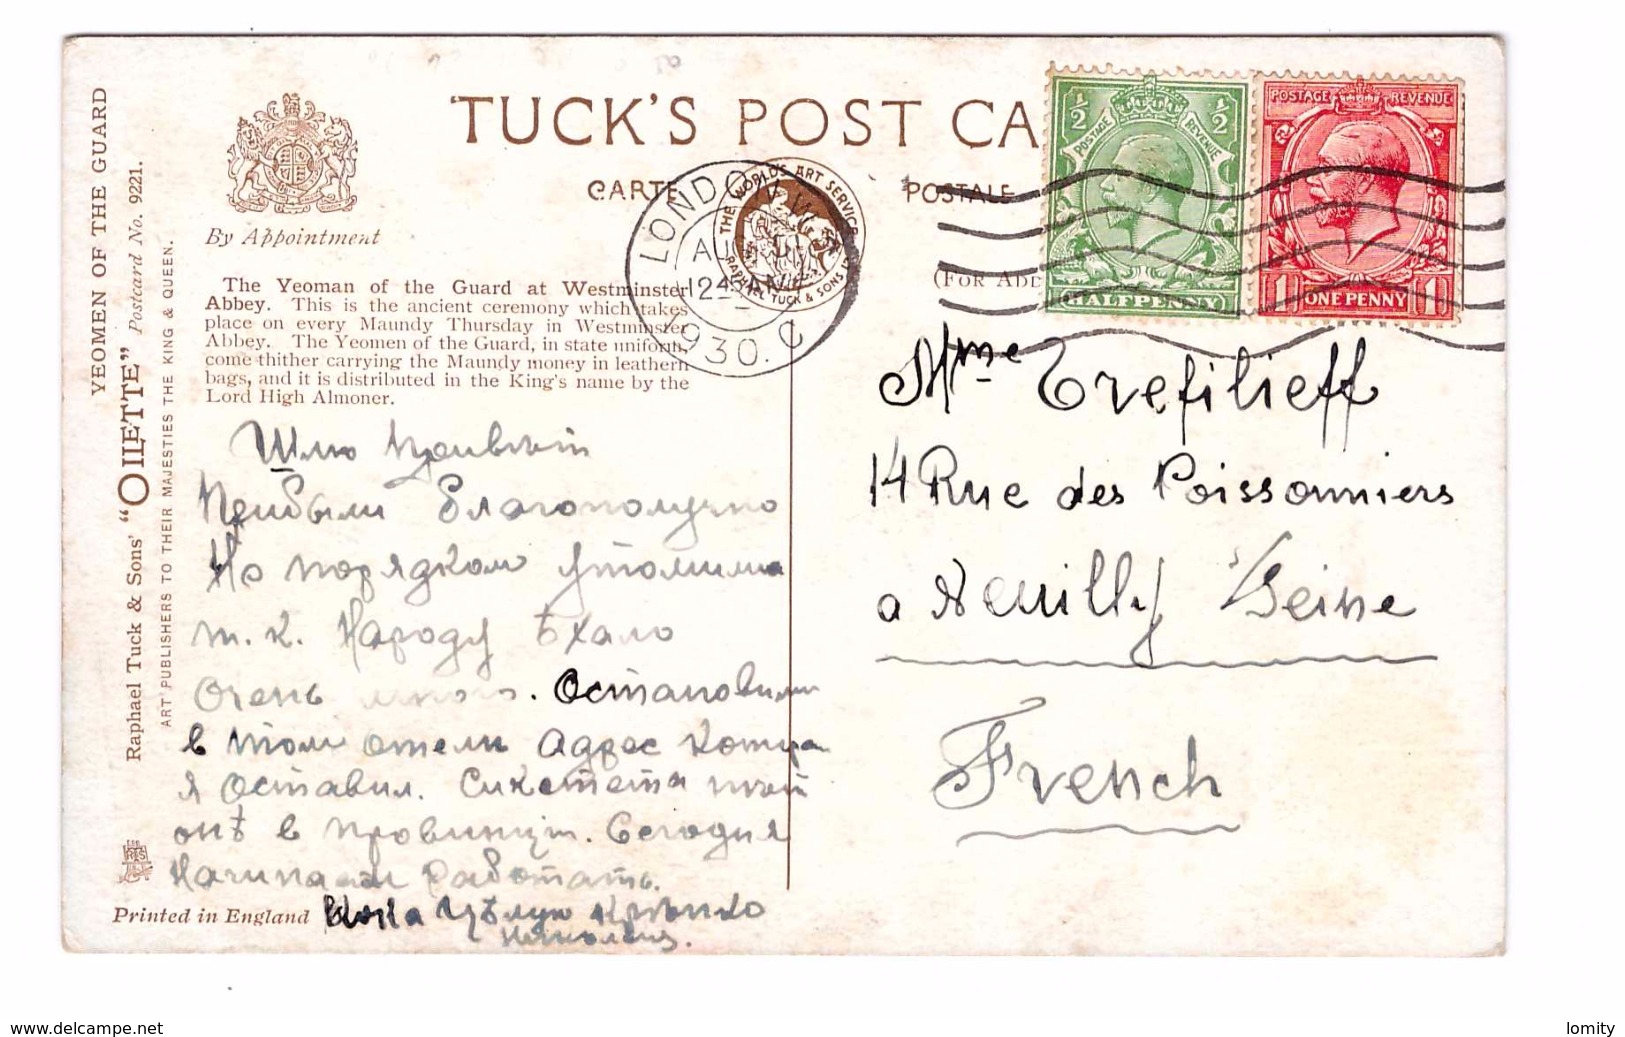 TUCK'S POST CA
CARTE POSTALE
(FOR ADD
By Appointment
YEOMEN OF THE GUARD
Raphael Tuck & Sons' "OILETTE" Postcard No. 9221.
ART PUBLISHERS TO THEIR MAJESTIES THE KING & QUEEN.
The Yeoman of the Guard at Westminster
Abbey. This is the ancient ceremony which takes
place on every Maundy Thursday in Westminster
Abbey. The Yeomen of the Guard, in state uniform,
come thither carrying the Maundy money in leathern
bags, and it is distributed in the King's name by the
Lord High Almoner.
THE WORLD'S ART SERVICE
RAPHAEL TUCK & SONS LD
LONDON W
12 45 AM
1930. C
½ ½
POSTAGE REVENUE
HALFPENNY
POSTAGE REVENUE
1 ONE PENNY 1
Шлю
Прибыли благополучно
Но порядком утомились
т.к. Народу ѣхало
очень много. Остановились
в том отели Адрес
я Оставил.
онѣ в провинции. Сегодня
Начинаем работать.
Цѣлую крѣпко
Printed in England
Mme Trefilieff
14 Rue des Poissonniers
a Neuilly s/Seine
French
www.delcampe.net
lomity